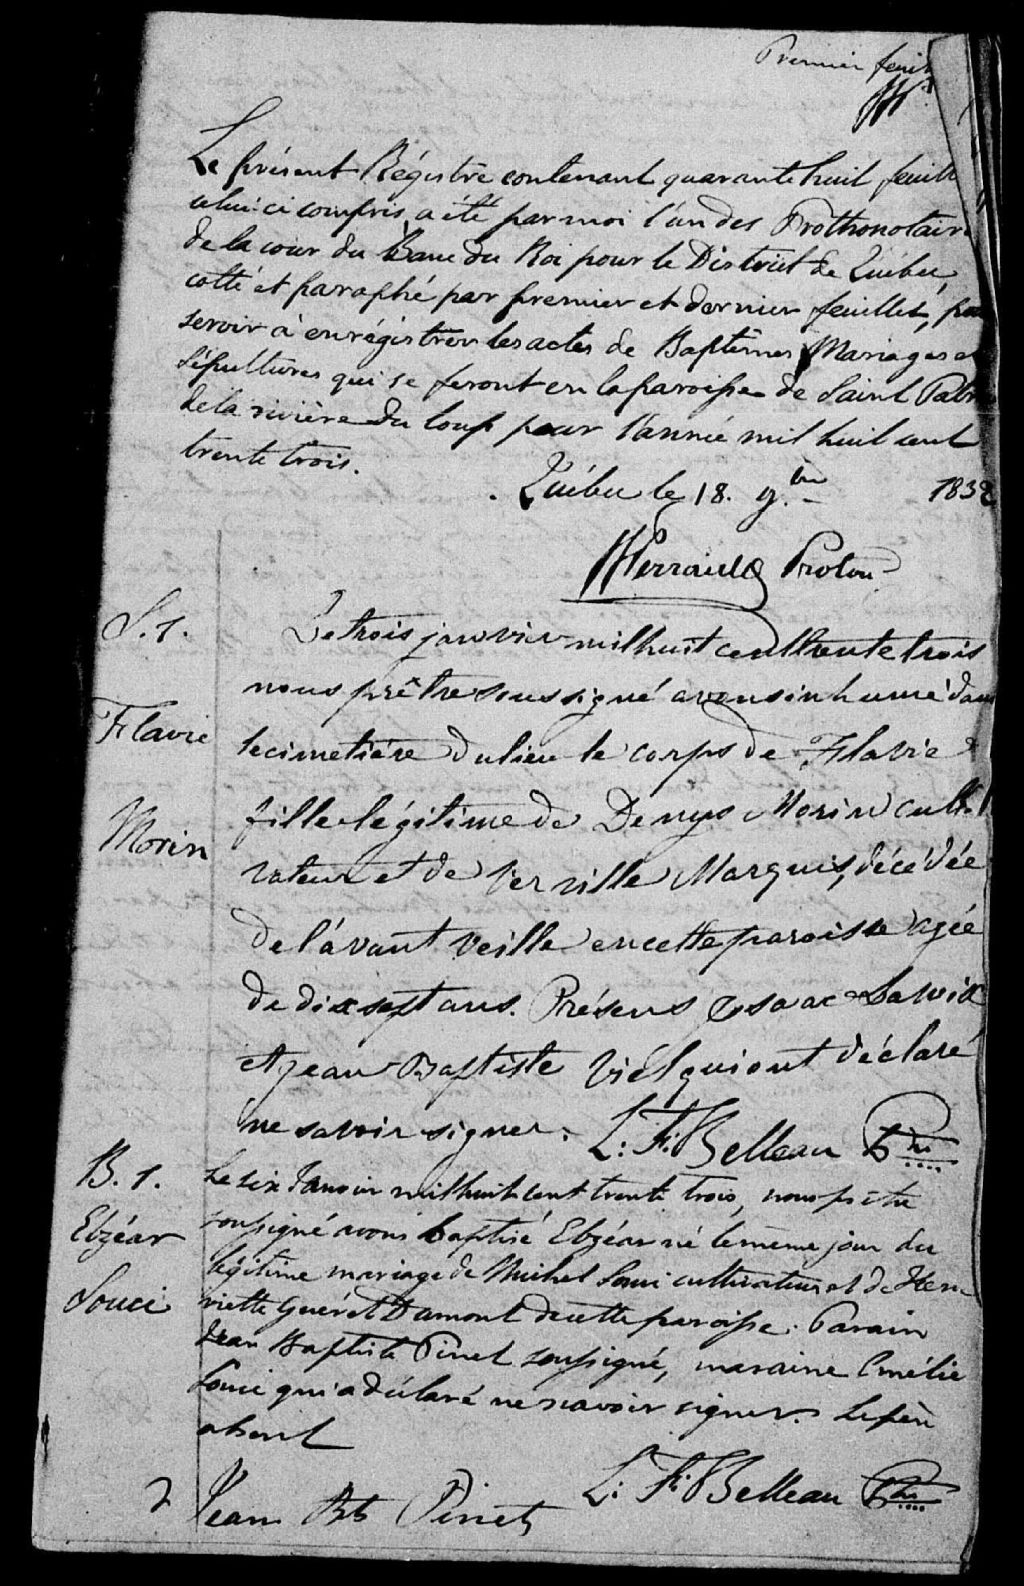 Premier feuill
Le présent Régistre contenant quarante huit feuill
celui ci compris, a été par moi l'un des Prothonotaires
de la cour du Banc du Roi pour le District de Québec,
cotté et paraphé par premier et dernier feuillet, pour
servir à enrégistrer les actes de Baptêmes Mariages et
Sépultures qui se feront en la paroisse de Saint Patrice
de la rivière du loup pour l'année mil huit cent
trente trois.
Québec le 18. 9.bre 1832
Perrault Proton
S. 1.
Flavie
Morin
Le trois janvier mil huit cent trente trois
nous prêtre soussigné avons inhumé dans
le cimetiére du lieu le corps de Flavie
fille légitime de Denys Morin culti
vateur et de Verville Marquis, décédée
de l'avant veille en cette paroisse agée
de dix sept ans. Présens Isaac
et jean Baptiste Viel qui ont déclaré
ne savoir signer.
L: F: Belleau Ptre
B. 1.
Elzéar
Souci
Le six Janvier mil huit cent trente trois, nous prêtre
soussigné avons baptisé Elzéar né le même jour du
légitime mariage de Michel Souci cultivateur et de Hen
riette Guéret Dumont de cette paroisse. Parain
Jean Baptiste Pinet soussigné, maraine Emélie
Souci qui a déclaré ne savoir signer. Le père
absent
L: F: Belleau Ptre
Jean Bte Pinet